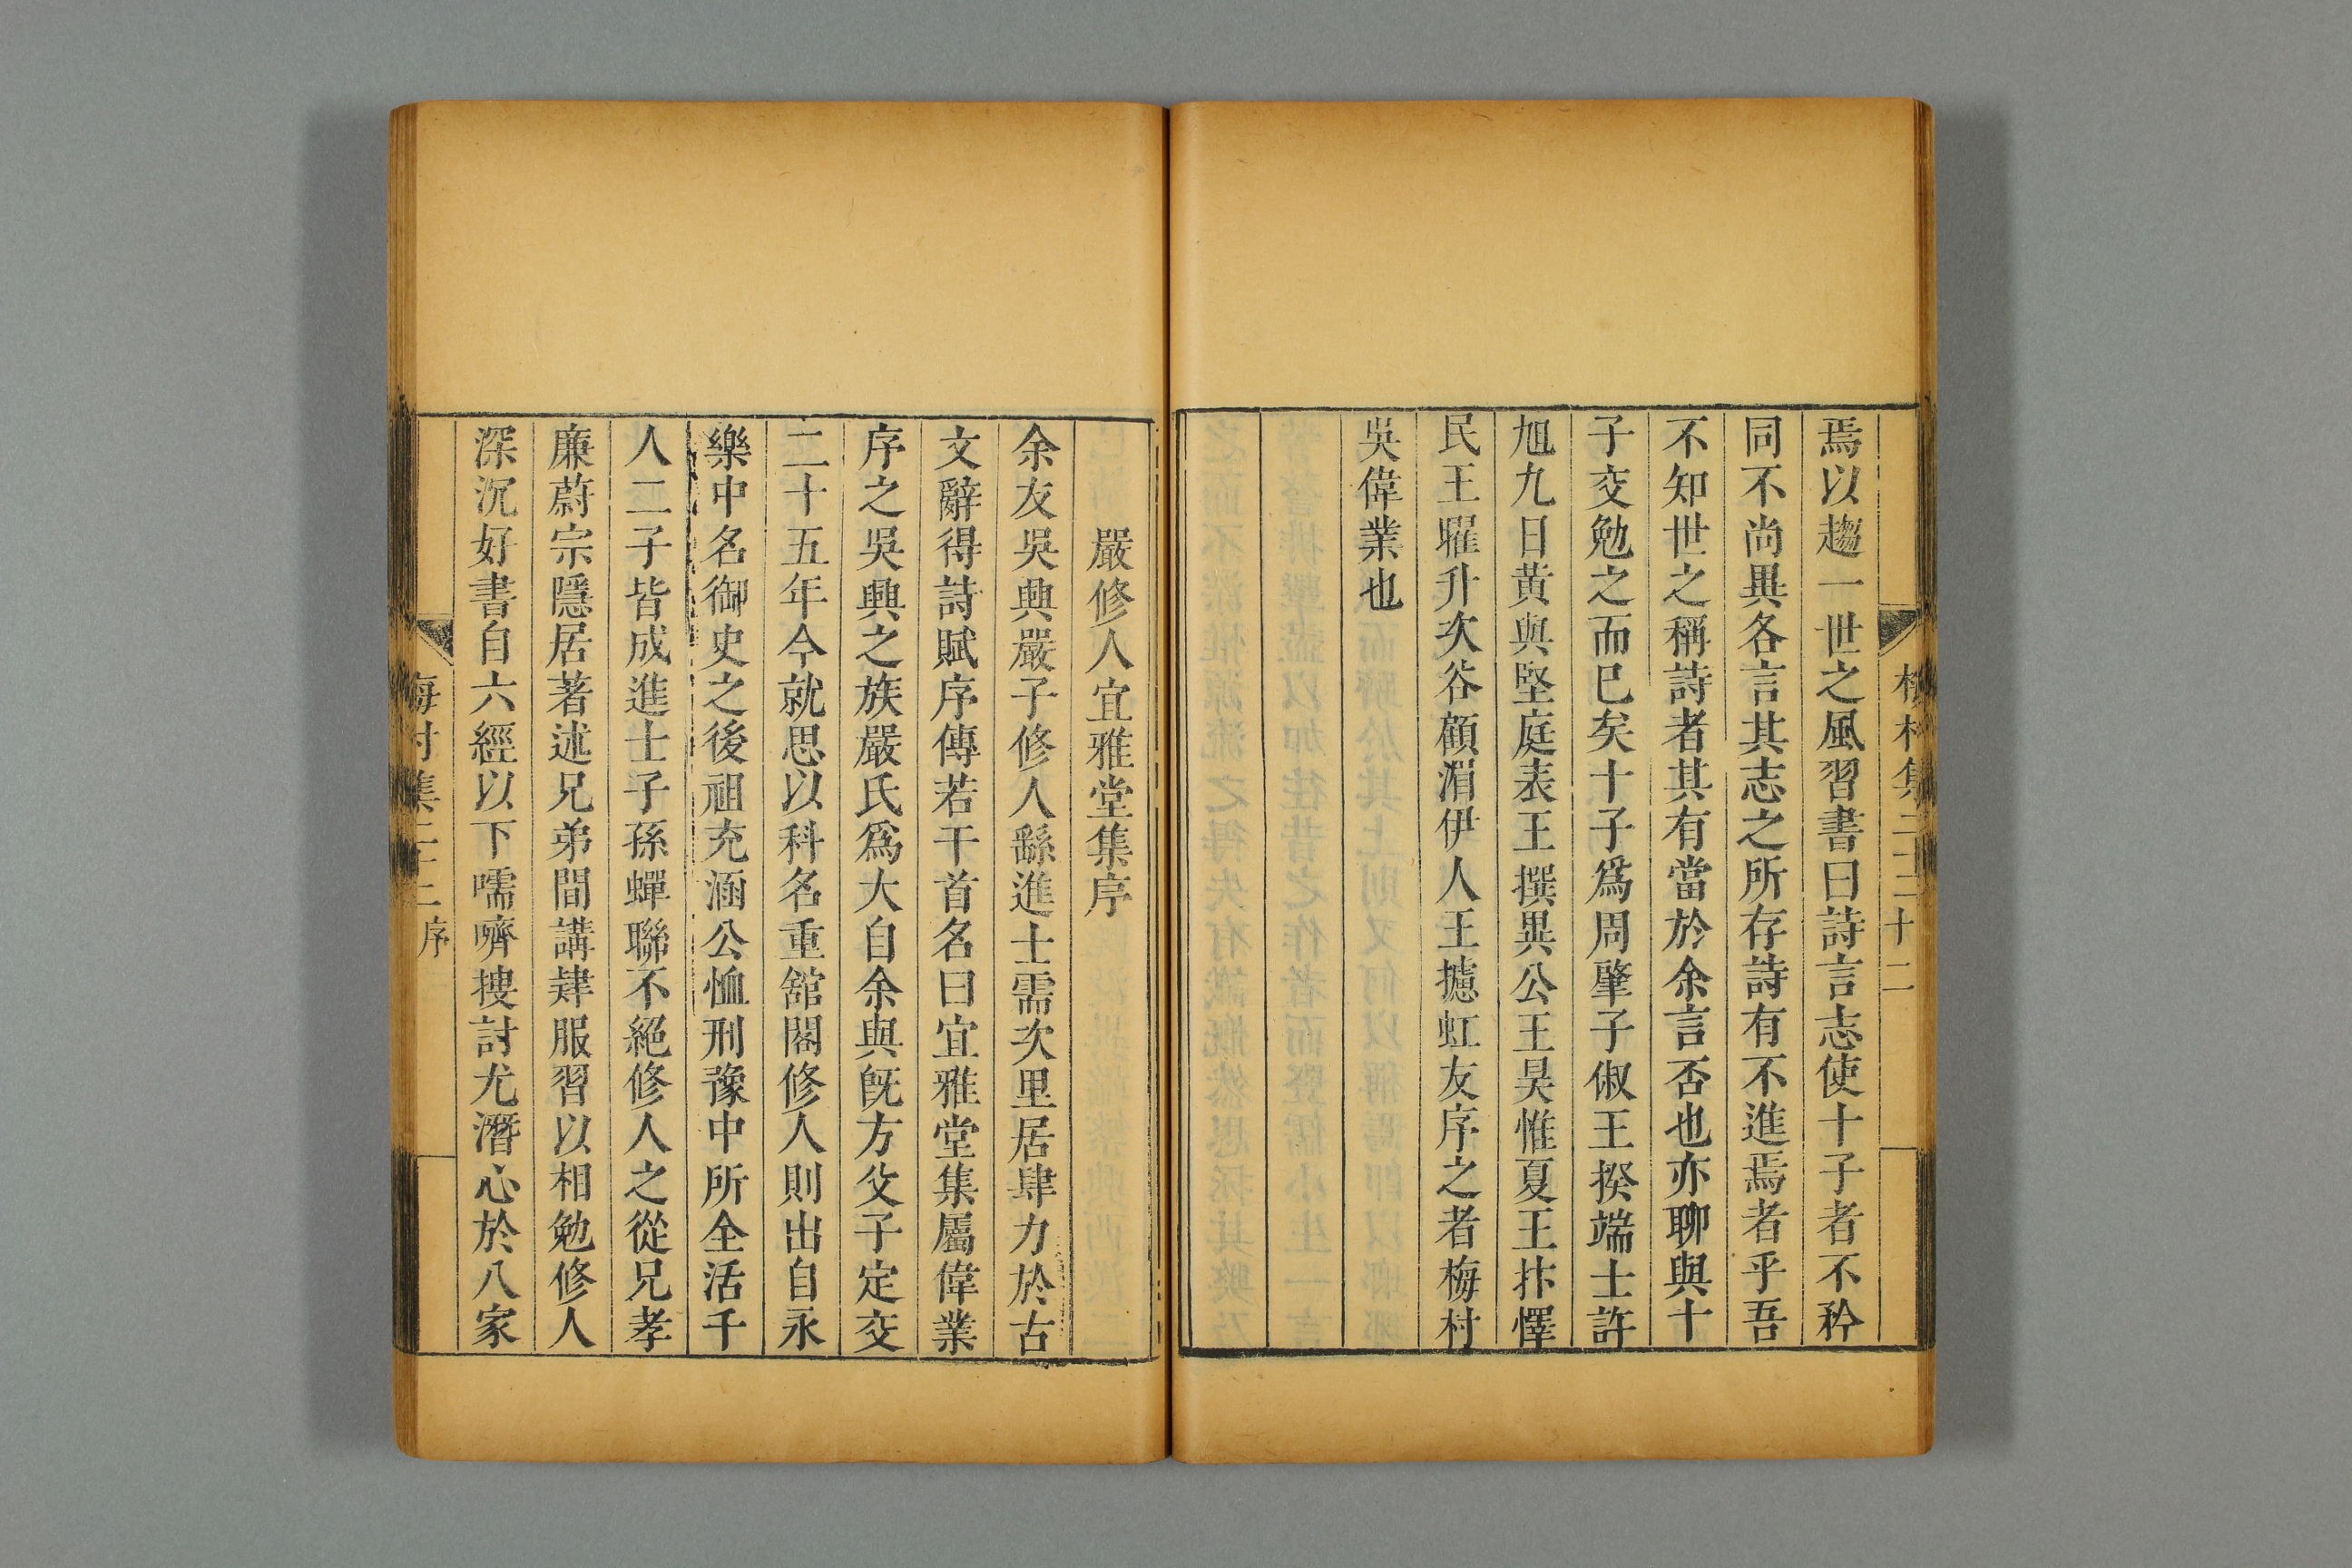 焉以趨一世之風習書曰詩言志使十子者不矜
同不尚異各言其志之所存詩有不進焉者乎吾
不知世之稱詩者其有當於余言否也亦聊與十
子交勉之而已矣十子爲周肇子俶王揆端士許
旭九日黃與堅庭表王撰異公王昊惟夏王抃懌
民王曜升次谷顧湄伊人王攄虹友序之者梅村
吳偉業也
嚴修人宜雅堂集序
余友吳興嚴子修人繇進士需次里居肆力於古
文辭得詩賦序傳若干首名曰宜雅堂集屬偉業
序之吳興之族嚴氏爲大自余與旣方父子定交
二十五年今就思以科名重舘閣修人則出自永
樂中名御史之後祖充涵公恤刑豫中所全活千
人二子皆成進士子孫蟬聯不絕修人之從兄孝
廉蔚宗隱居著述兄弟間講肄服習以相勉修人
深沉好書自六經以下嚅嚌搜討尤潛心於八家